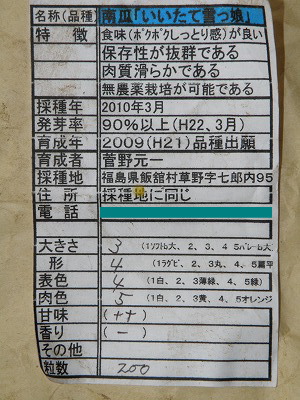 名称(品種) 南瓜「いいたて雪っ娘」
特徴 食味(ホクホクしっとり感)が良い
保存性が抜群である
肉質滑らかである
無農薬栽培が可能である
採種年 2010年3月
発芽率 90%以上(H22、3月)
育成年 2009(H21)品種出願
育成者 菅野元一
採種地 福島県飯舘村草野字七郎内95
住所 採種地に同じ
電話
大きさ 3 (1ソフトb大、2、3、4 5バレーb大
形 4 (1ラグビ、2、3丸、4、5扁平
表色 4 (1白、2、3薄緑、4、5緑)
肉色 5 (1白、2、3黄、4、5オレンジ
甘味 (++)
香り (-)
その他
粒数 200